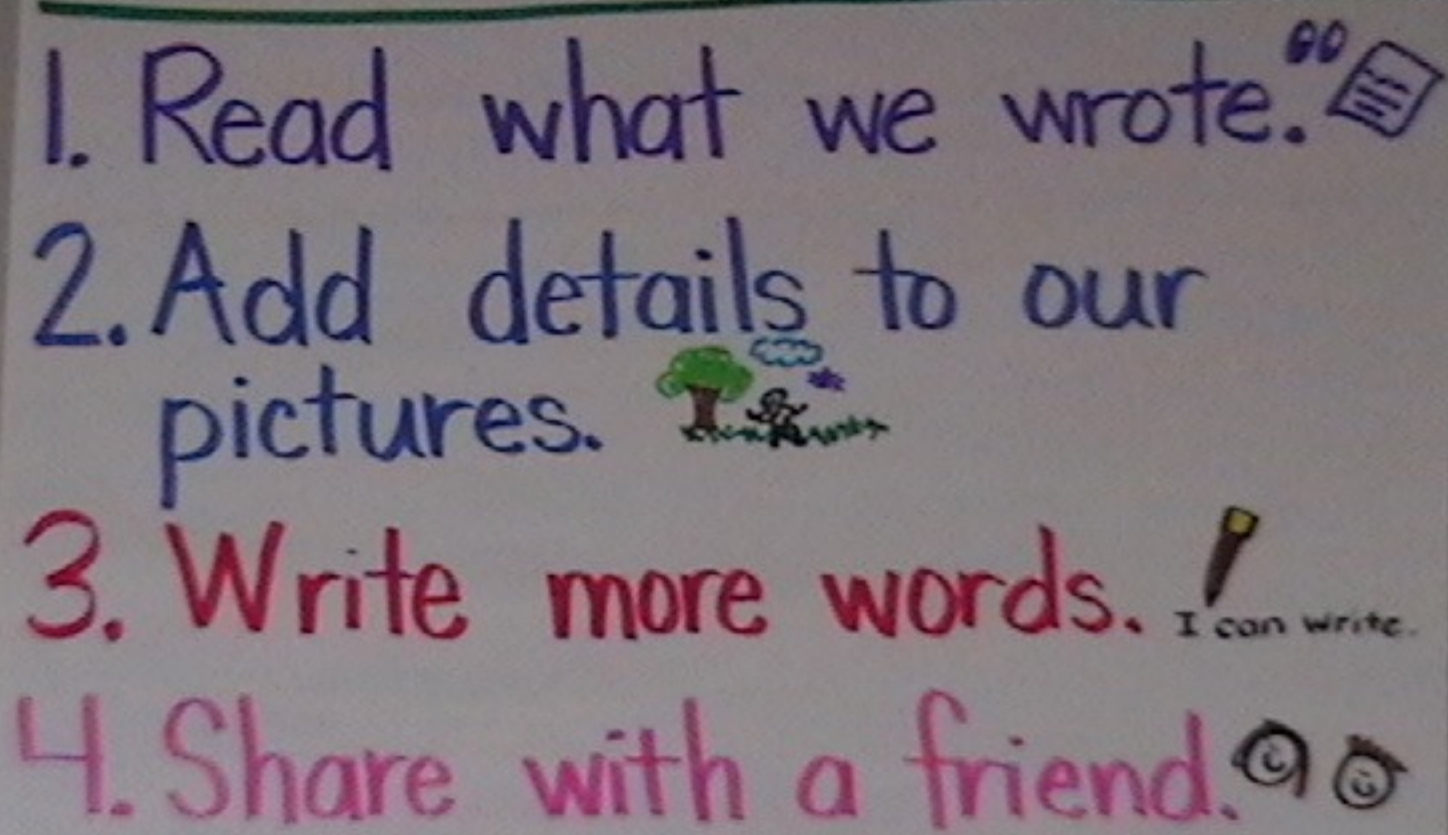 1. Read what we wrote.
2. Add details to our
pictures.
3. Write more words.
I can write.
4. Share with a friend.